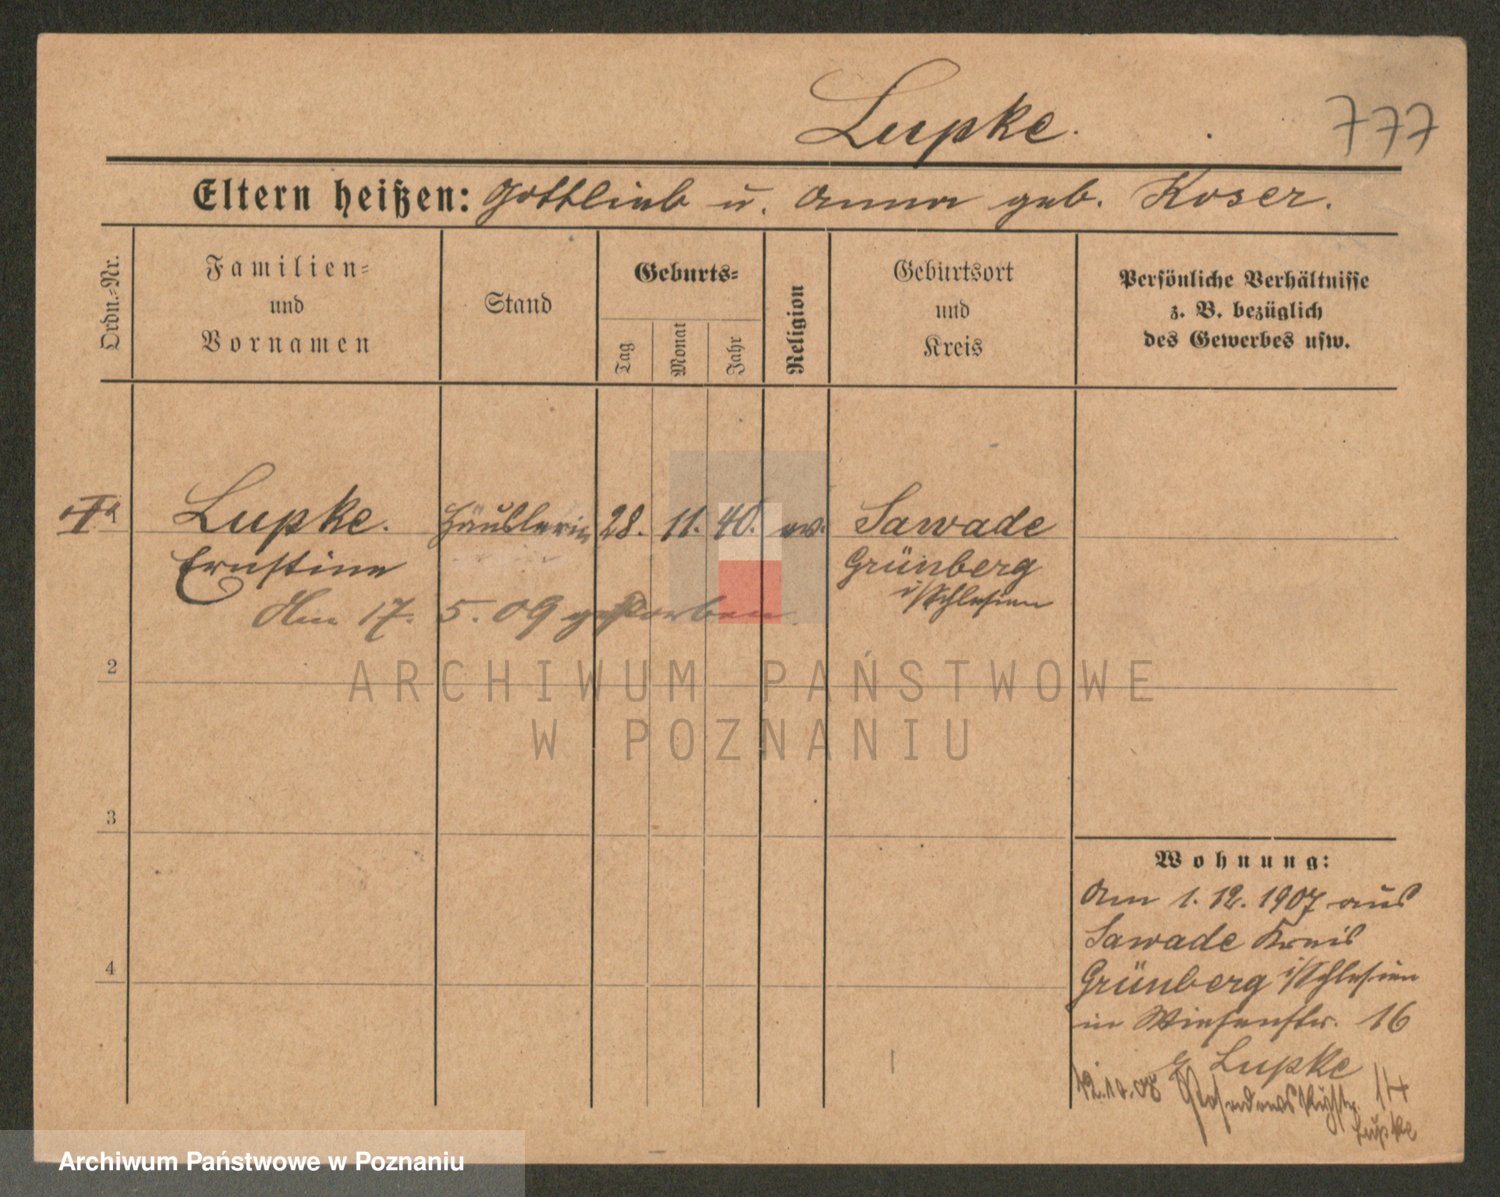 Lupke.
777
Eltern heißen: Gottlieb u. Anna geb. Koser.
Ordn.-Nr.
Familien-
und
Vornamen
Stand
Geburts-
Tag
Monat
Jahr
Religion
Geburtsort
und
Kreis
Persönliche Verhältnisse
z. B. bezüglich
des Gewerbes usw.
Lupke. Häuslerin 28. 11. 40. ev. Sawade
Ernstine Grünberg
i/Schlesien
Am 17. 5. 09 gestorben.
2
ARCHIWUM PAŃSTWOWE
W POZNANIU
3
4
Wohnung:
Am 1. 12. 1907 aus
Sawade Kreis
Grünberg i/Schlesien
in Wiesenstr. 16
Lupke
12.10.08 14
Lupke
Archiwum Państwowe w Poznaniu